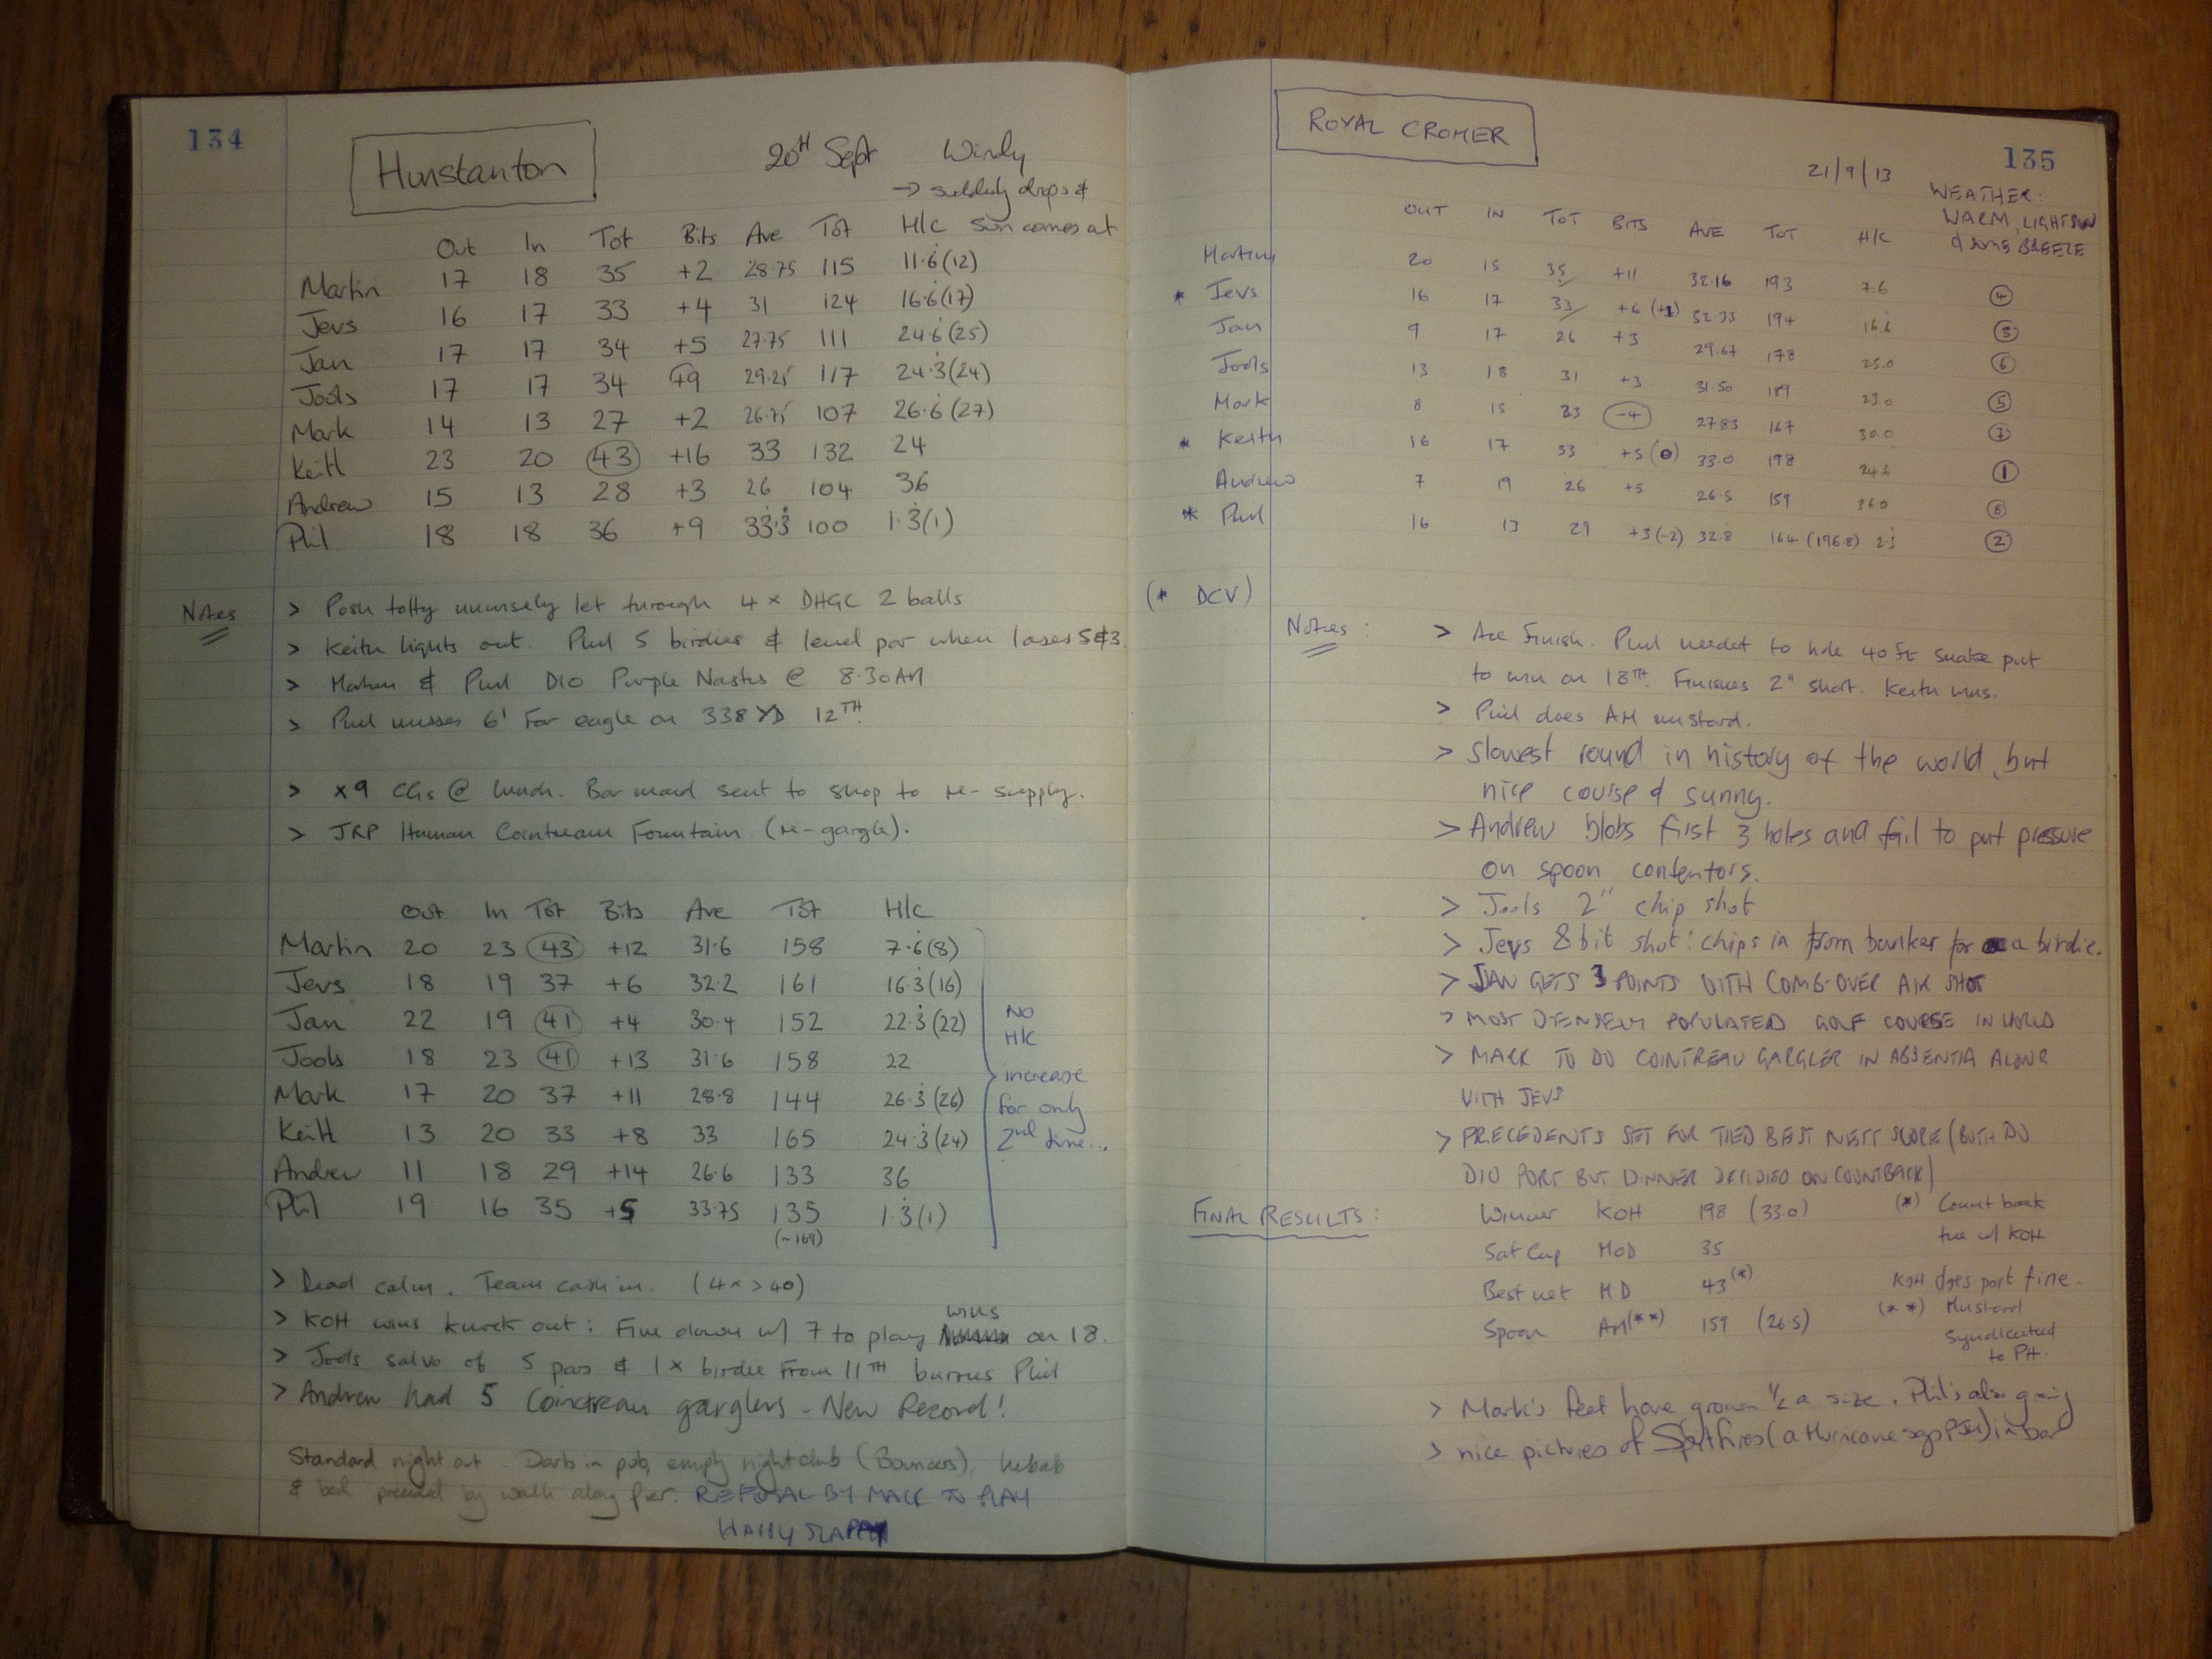 134
Hunstanton
20TH Sept Windy
→ suddenly drops &
sun comes out
Out In Tot Bits Ave Tot H/C
Martin 17 18 35 +2 28.75 115 11.6(12)
Jevs 16 17 33 +4 31 124 16.6(17)
Jan 17 17 34 +5 27.75 111 24.6(25)
Jools 17 17 34 +9 29.25 117 24.3(24)
Mark 14 13 27 +2 26.75 107 26.6(27)
Keith 23 20 43 +16 33 132 24
Andrew 15 13 28 +3 26 104 36
Phil 18 18 36 +9 33.3 100 1.3(1)
Notes
> Posh totty unwisely let through 4 x DHGC 2 balls
> Keith lights out. Phil 5 birdies & level par when loses 5&3.
> Martin & Phil DIO Purple Nasties @ 8.30AM
> Phil misses 6' for eagle on 338YD 12TH.
> x9 CGs @ lunch. Bar maid sent to shop to re-supply.
> JRP Human Cointreau Fountain. (re-gargle).
Out In Tot Bits Ave Tot H/C
Martin 20 23 43 +12 31.6 158 7.6(8)
Jevs 18 19 37 +6 32.2 161 16.3(16)
Jan 22 19 41 +4 30.4 152 22.3(22)
Jools 18 23 41 +13 31.6 158 22
Mark 17 20 37 +11 28.8 144 26.3(26)
Keith 13 20 33 +8 33 165 24.3(24)
Andrew 11 18 29 +14 26.6 133 36
Phil 19 16 35 +5 33.75 135 1.3(1)
(~169)
NO
H/C
increase
for only
2nd time...
> Dead calm. Team cash in. (4x >40)
> KOH wins knock out: Five down w/ 7 to play wins on 18.
> Jools salvo of 5 pars & 1x birdie from 11TH buries Phil
> Andrew had 5 Cointreau garglers - New Record!
Standard night out. Darts in pub, empty nightclub (Bouncers), kebab
& bed preceded by walk along pier. REFUSAL BY MARK TO PLAY
HAPPY SLAPPY
ROYAL CROMER
135
21/9/13
WEATHER:
WARM, LIGHT SUN
& SOME BREEZE
OUT IN TOT BITS AVE TOT H/C
Martin 20 15 35 +11 32.16 193 7.6 4
* Jevs 16 17 33 +6 (+1) 32.33 194 16.6 3
Jan 9 17 26 +3 29.67 178 25.0 6
Jools 13 18 31 +3 31.50 189 23.0 5
Mark 8 15 23 -4 27.83 167 30.0 7
* Keith 16 17 33 +5 (0) 33.0 198 24.6 1
Andrew 7 19 26 +5 26.5 159 36.0 8
* Phil 16 13 29 +3(-2) 32.8 164 (196.8) 2.3 2
(* DCV)
Notes:
> Ace Finish. Phil needed to hole 40ft snake putt
to win on 18TH. Finishes 2" short. Keith wins.
> Phil does AM mustard.
> Slowest round in history of the world, but
nice course & sunny.
> Andrew blobs first 3 holes and fail to put pressure
on spoon contentors.
> Jools 2" chip shot
> Jevs 8 bit shot! chips in from bunker for a birdie.
> JAN GETS 3 POINTS WITH COMB-OVER AIR SHOT
> MOST DENSELY POPULATED GOLF COURSE IN WORLD
> MARK TO DO COINTREAU GARGLER IN ABSENTIA ALONG
WITH JEVS
> PRECEDENTS SET FOR TIED BEST NETT SCORE (BOTH DO
DIO PORT BUT DINNER DECIDED ON COUNTBACK)
FINAL RESULTS:
Winner KOH 198 (33.0)
Sat Cup MOD 35
Best net MD 43(*)
Spoon AM(**) 159 (26.5)
(*) Count back
tie w/ KOH
KOH does port fine.
(**) Mustard
syndicated
to PH.
> Mark's feet have grown ½ a size. Phil's also going
> nice pictures of Spitfires (a Hurricane says PSH) in bar